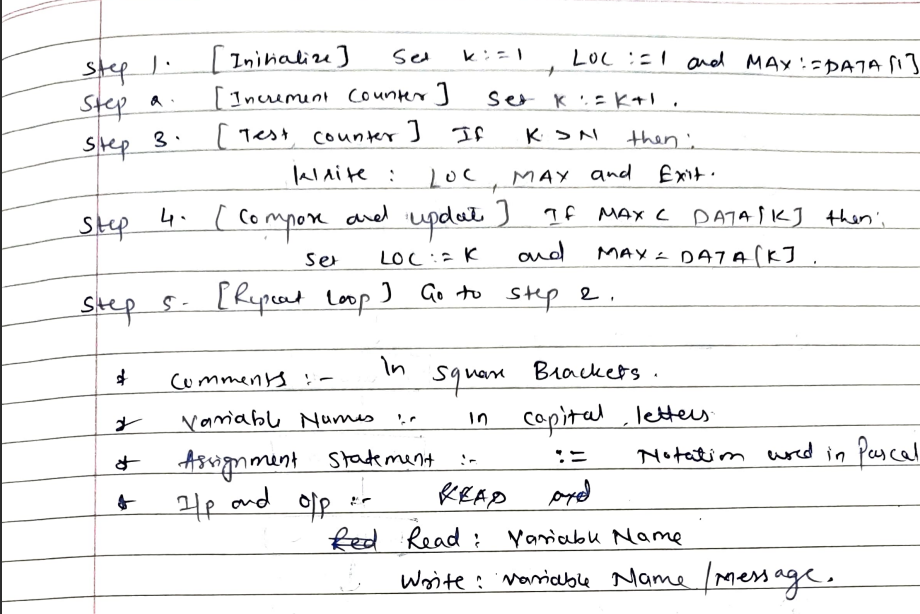 Step 1. [Initialize] Set K:=1, LOC:=1 and MAX:=DATA[1]
Step 2. [Increment Counter] Set K:=K+1.
Step 3. [Test counter] If K>N then:
Write: LOC, MAX and Exit.
Step 4. [Compare and update] If MAX < DATA[K] then:
Set LOC:=K and MAX=DATA[K].
Step 5. [Repeat loop] Go to step 2.
* Comments :- In Square Brackets.
* Variable Names :- in capital letters
* Assignment Statement :- := Notation used in Pascal
* I/p and o/p :- READ and
Red Read: Variable Name
Write: variable Name / message.